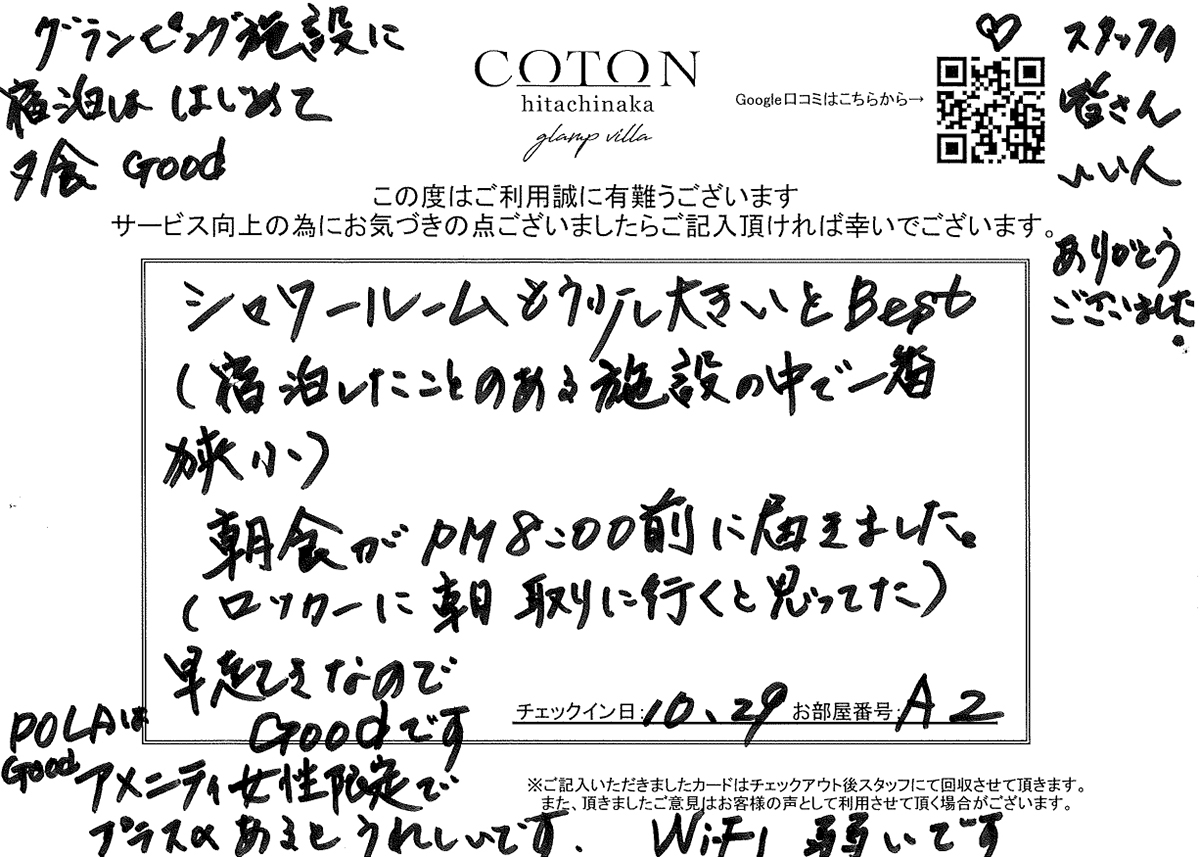 グランピング施設に
宿泊は はじめて
夕食 Good
COTON
hitachinaka
glamp villa
Google口コミはこちらから→
スタッフの
皆さん
いい人
ありがとう
ございました。
この度はご利用誠に有難うございます
サービス向上の為にお気づきの点ございましたらご記入頂ければ幸いでございます。
シャワールームもう少し大きいとBest
(宿泊したことのある施設の中で一番
狭小)
朝食がPM8:00前に届きました。
(ロッカーに朝取りに行くと思ってた)
早起きなので
Goodです
チェックイン日:10、29 お部屋番号:A2
POLAは
Good
アメニティ女性限定で
プラスαあるとうれしいです.
WiFi 弱いです
※ご記入いただきましたカードはチェックアウト後スタッフにて回収させて頂きます。
また、頂きましたご意見はお客様の声として利用させて頂く場合がございます。